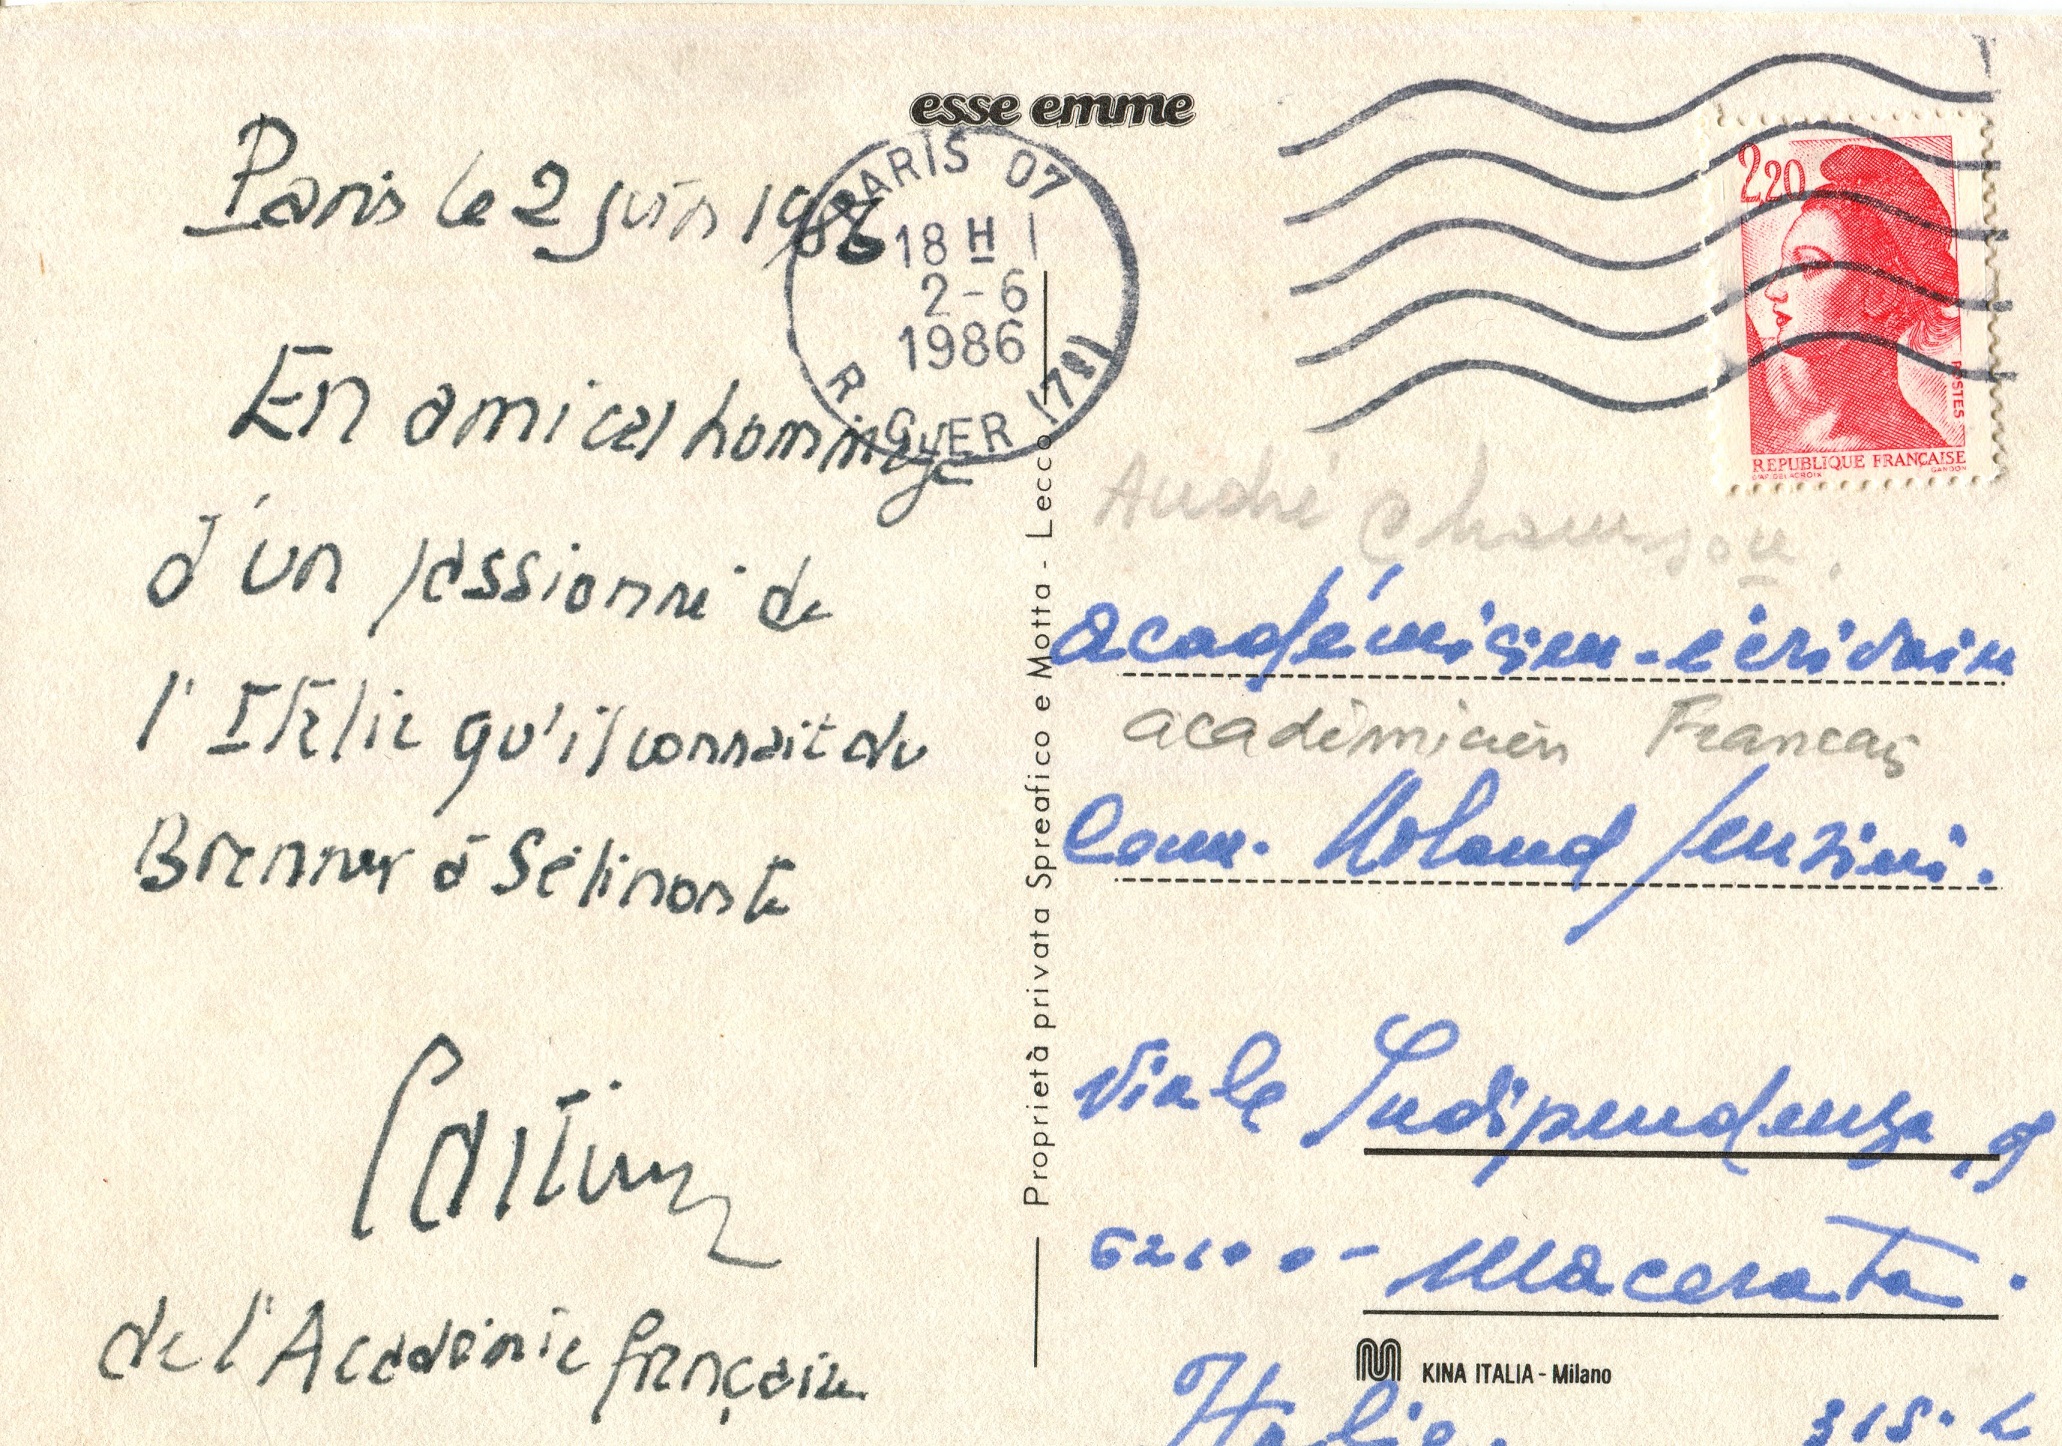 esse emme
Paris le 2 juin 1986
PARIS 07
18 H
2-6
1986
R. CLER (7e)
2,20
POSTES
REPUBLIQUE FRANÇAISE
D'AP. DELACROIX GANDON
En amical hommage
d'un passionné de
l'Italie qu'il connait du
Brenner à Sélinonte
de l'Académie française
Proprietà privata Spreafico e Motta - Lecco
André Chamson.
académicien-écrivain
académicien Francas
Comm. Roland
Viale Indipendenza
62100 - Macerata.
KINA ITALIA - Milano
Italie.